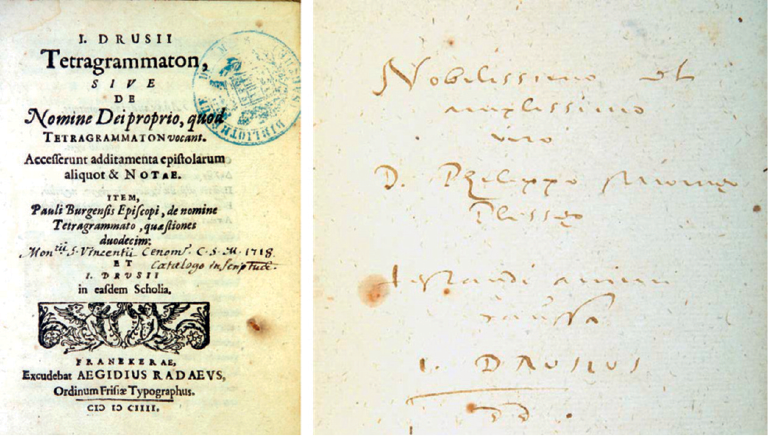 I. DRUSII
Tetragrammaton,
SIVE
DE
Nomine Dei proprio, quod
TETRAGRAMMATON vocant.
Accesserunt additamenta epistolarum
aliquot & NOTAE.
ITEM,
Pauli Burgensis Episcopi, de nomine
Tetragrammato, quæstiones
duodecim:
Mon^rii S. Vincentii Cenom^s. C. S. M. 1718.
ET Catalogo inscriptus.
I. DRUSII
in easdem Scholia.
FRANEKERAE,
Excudebat AEGIDIUS RADAEVS,
Ordinum Frisiæ Typographus.
CIↃ IↃ CIIII.
BIBLIOTHE
Nobilissimo et
amplissimo
viro
D. Philippo Morneo
Plesseo
testandi animi
caussa
I. DRUSIUS
dd.